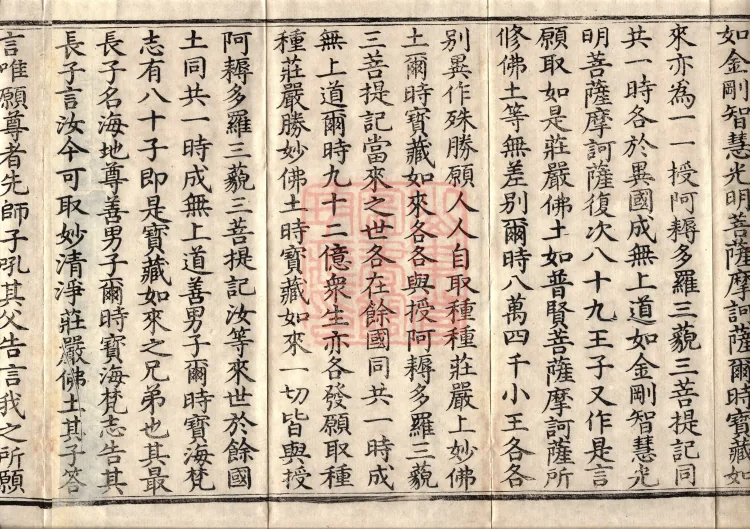 如金剛智慧光明菩薩摩訶薩爾時寶藏如
來亦為一一授阿耨多羅三藐三菩提記同
共一時各於異國成無上道如金剛智慧光
明菩薩摩訶薩復次八十九王子又作是言
願取如是莊嚴佛土如普賢菩薩摩訶薩所
修佛土等無差別爾時八萬四千小王各各
別異作殊勝願人人自取種種莊嚴上妙佛
土爾時寶藏如來各各與授阿耨多羅三藐
三菩提記當來之世各在餘國同共一時成
無上道爾時九十二億眾生亦各發願取種
種莊嚴勝妙佛土時寶藏如來一切皆與授
阿耨多羅三藐三菩提記汝等來世於餘國
土同共一時成無上道善男子爾時寶海梵
志有八十子即是寶藏如來之兄弟也其最
長子名海地尊善男子爾時寶海梵志告其
長子言汝今可取妙清淨莊嚴佛土其子答
言唯願尊者先師子吼其父告言我之所願